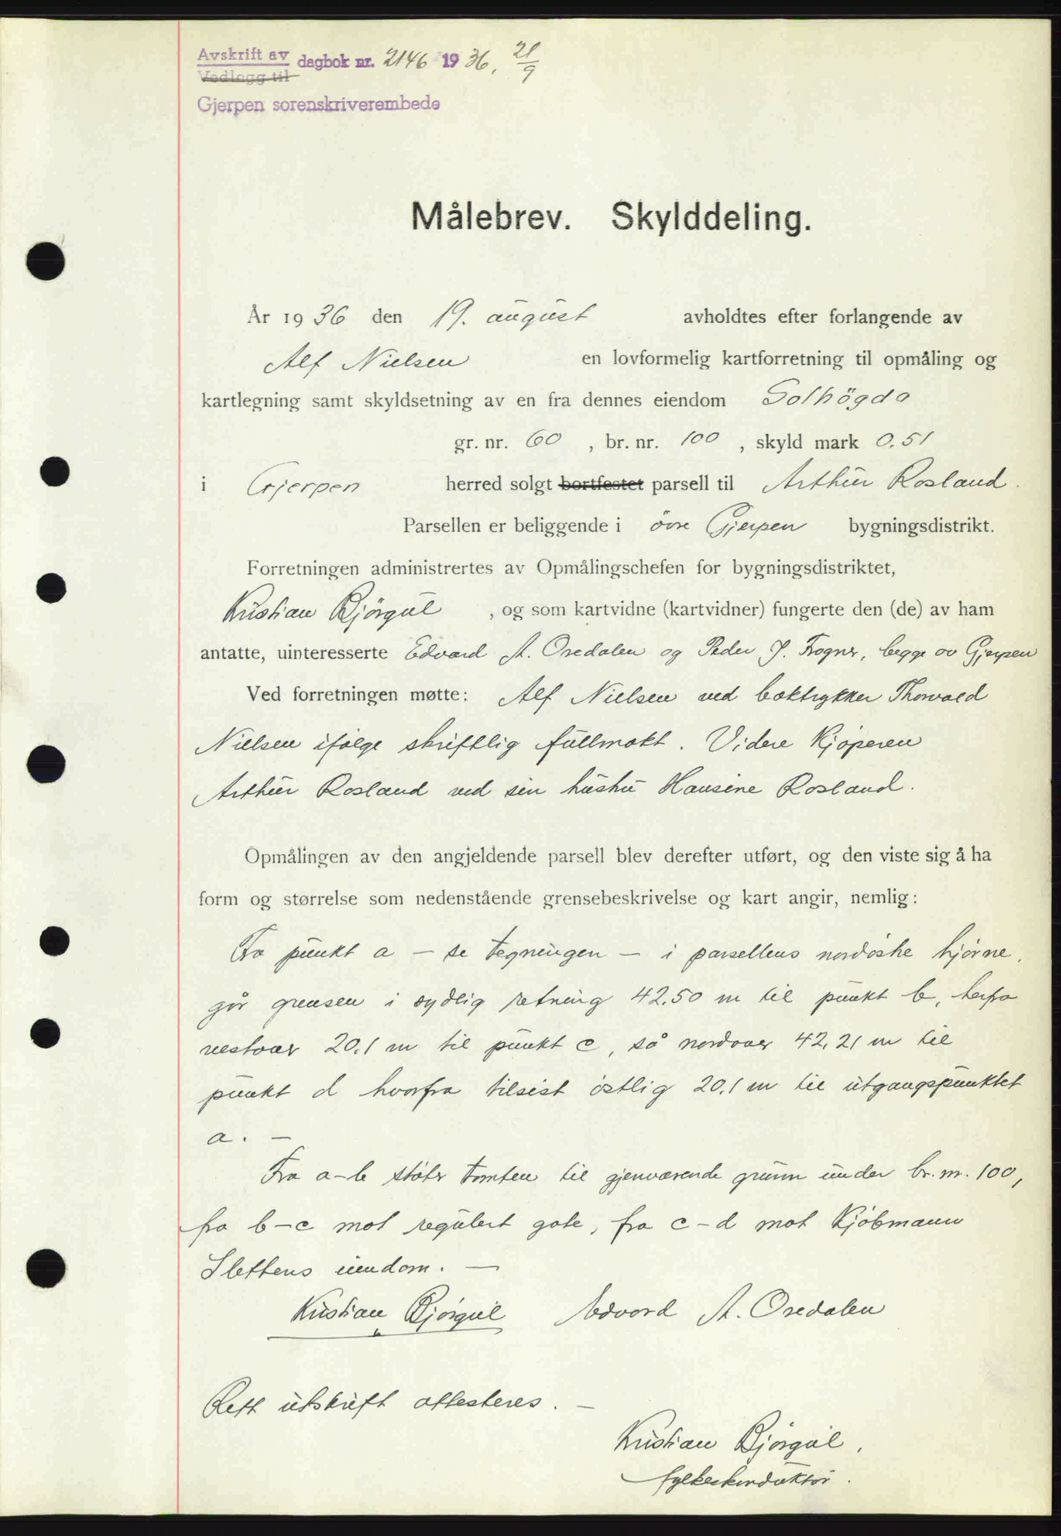 Avskrift av dagbok nr. 2146 1936, 21/9
Vedlegg til
Gjerpen sorenskriverembede
Målebrev. Skylddeling.
År 1936 den 19. august avholdtes efter forlangende av
Alf Nielsen en lovformelig kartforretning til opmåling og
kartlegning samt skyldsetning av en fra dennes eiendom Solhögda
gr. nr. 60 , br. nr. 100 , skyld mark 0.51
i Gjerpen herred solgt bortfestet parsell til Arthur Rosland.
Parsellen er beliggende i övre Gjerpen bygningsdistrikt.
Forretningen administrertes av Opmålingschefen for bygningsdistriktet,
Kristian Bjørgül , og som kartvidne (kartvidner) fungerte den (de) av ham
antatte, uinteresserte Edvard A. Oredalen og Peder J. Frogner, begge av Gjerpen
Ved forretningen møtte: Alf Nielsen ved boktrykker Thorvald
Nielsen ifølge skriftlig fullmakt. Videre kjøperen
Arthur Rosland ved sin hustru Hansine Rosland.
Opmålingen av den angjeldende parsell blev derefter utført, og den viste sig å ha
form og størrelse som nedenstående grensebeskrivelse og kart angir, nemlig:
Fra punkt a - se tegningen - i parsellens nordöstre hjörne,
går grensen i sydlig retning 42.50 m til punkt b, herfra
vestover 20.1 m til punkt c, så nordover 42,21 m til
punkt d hvorfra tilsist östlig 20.1 m til utgangspunktet
a. -
Fra a-b støter tomten til gjenværende grunn under br. nr. 100,
fra b-c mot regulert gate, fra c-d mot kjöbmann
Slettens eiendom. -
Kristian Bjørgül Edvard A. Oredalen
Rett utskrift attesteres. -
Kristian Bjørgül,
fylkeskonduktör.